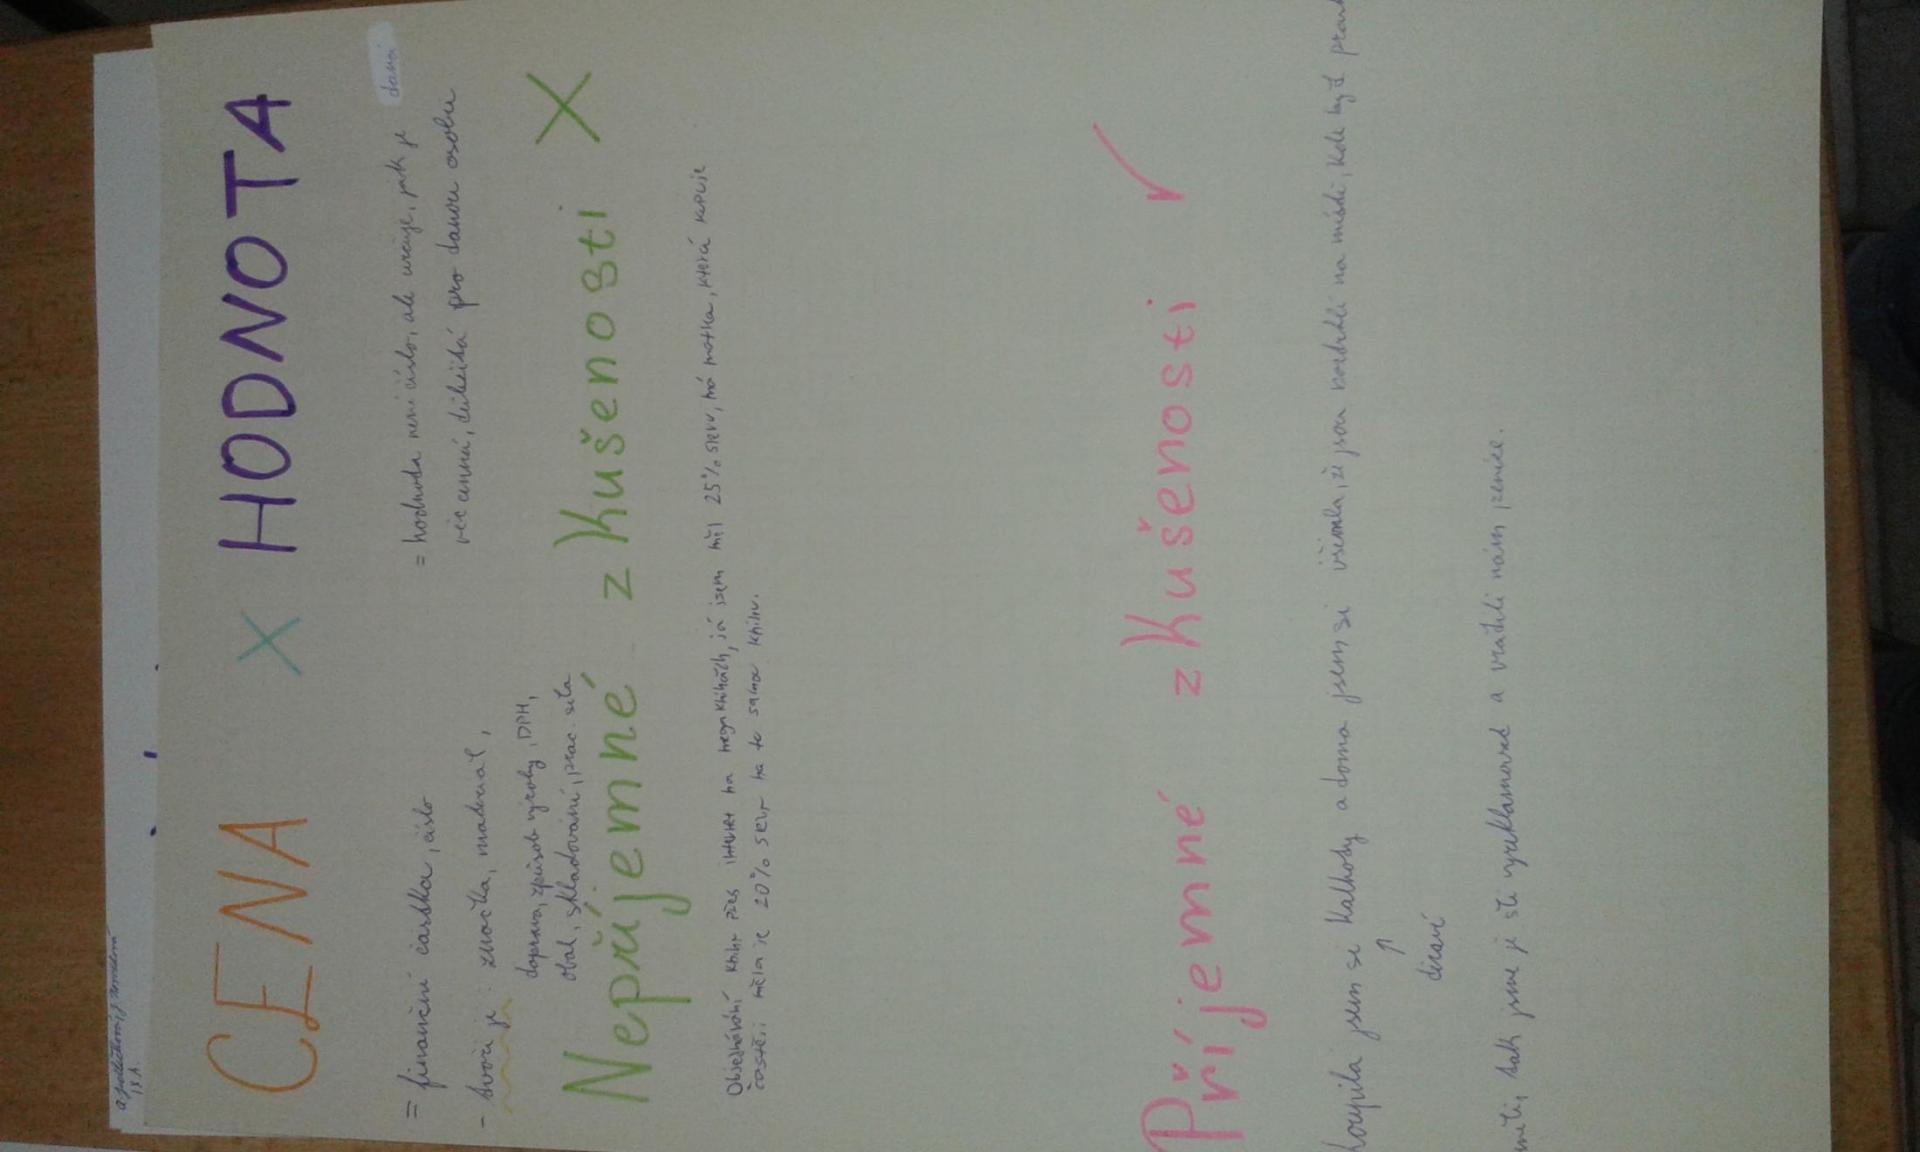 CENA X HODNOTA
= finanční částka, číslo
- tvoří je: značka, materiál,
doprava, způsob výroby, DPH,
obal, skladování, prac. síla
= hodnota není číslo, ale určuje, jak je daná
věc cenná, důležitá pro danou osobu
Nepříjemné zkušenosti X
Objednávání knihy přes internet na megaknihách, já jsem měl 25% slevu, má matka, která kupuje
častěji měla je 20% slevu na tu samou knihu.
Příjemné zkušenosti ✓
koupila jsem si kalhoty a doma jsem si všimla, že jsou roztrhlé na místě, kde být
↑
děravé
tak jsme je šli vyreklamovat a vrátili nám peníze.